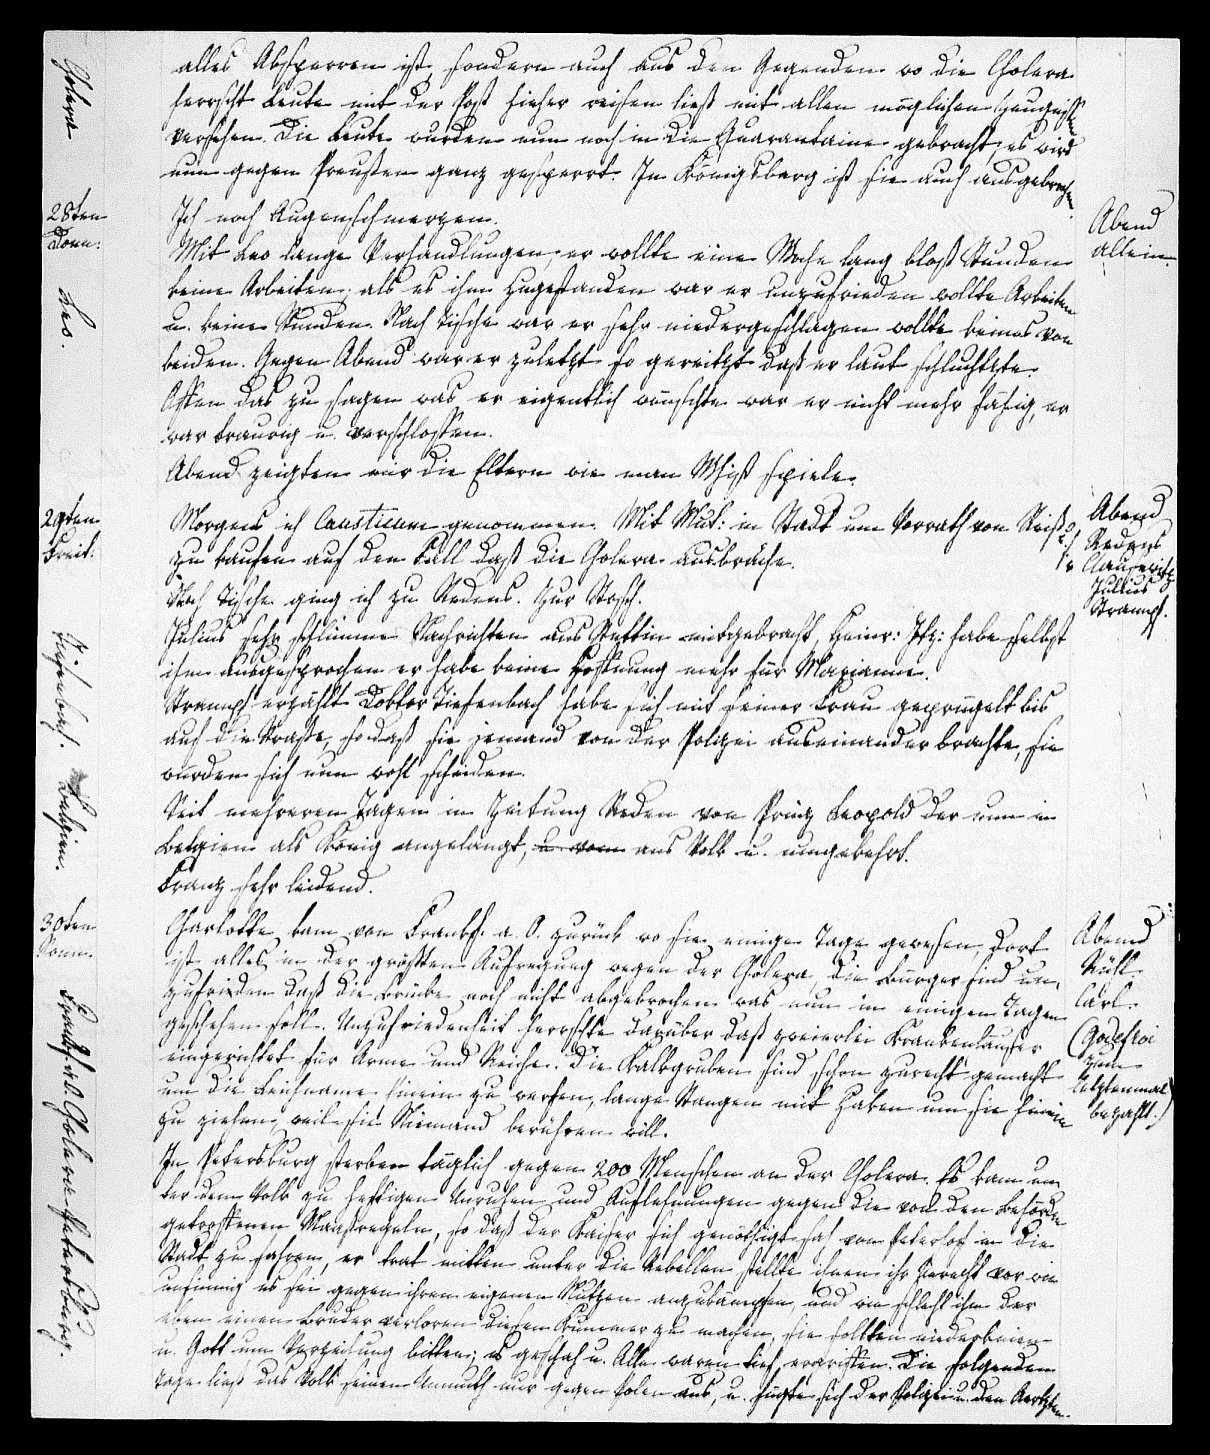 alles Absperren ist, sondern auch aus den Gegenden wo die Cholera
herrscht Leute mit der Post hieher reisen ließ mit allen möglichen Zeugnissen
versehen. Die Leute wurden nun noch in die Quarantaine gebracht, es wird
nun gegen Preußen ganz gesperrt. In Königsberg ist sie auch ausgebrochen.
Cholera
28ten
Donn:
Ich noch Augenschmerzen.
Abend
allein.
Leo.
Mit Leo lange Verhandlungen, er wollte eine Woche lang bloß Stunden
keine Arbeiten, als es ihm zugestanden war er unzufrieden wollte Arbeiten
u. keine Stunden. Nach Tische war er sehr niedergeschlagen wollte keines von
beiden. Gegen Abend war er zuletzt so gereitzt daß er laut schluchzte.
Offen das zu sagen was er eigentlich wünschte war er nicht mehr fähig, er
war traurig u. verschlossen.
Abend zeigten mir die Eltern wie man Whist spiele.
29ten
Freit:
Morgens ich Causticum genommen. Mit Mut: in Stadt um Vorrath von Reiß
zu kaufen auf den Fall daß die Cholera ausbräche.
Abend
Redens
Clausewitz
Julius
Strampf.
Nach Tische ging ich zu Redens. Zur Stosch.
Julius sehr schlimme Nachrichten aus Stettin mitgebracht, Heinr: habe selbst
ihm ausgesprochen er habe keine Hoffnung mehr für Marianne.
Tiefenbach.
Strampf erzählt Doktor Tiefenbach habe sich mit seiner Frau geprügelt bis
auf die Straße, so daß sie jemand von der Polizei auseinander brachte, sie
würden sich nun wohl scheiden.
Belgien.
Seit mehreren Tagen in Zeitung Reden von Prinz Leopold der nun in
Belgien als König angelangt, u. vom ans Volk u. umgekehrt.
Franz sehr leidend.
30ten
Sonn.
Charlotte kam von Frankf. a. O. zurück wo sie einige Tage gewesen, dort
ist alles in der größten Aufregung wegen der Cholera, die Bürger sind un-
zufrieden daß die Brücke noch nicht abgebrochen was nun in einigen Tagen
geschehen soll. Unzufriedenheit herrschte darüber daß zweierlei Krankenhäuser
eingerichtet für Arme und Reiche. Die Kalkgruben sind schon zurecht gemacht
um die Leichname hinein zu werfen, lange Stangen mit Haken um sie hinein
zu ziehen, weil sie Niemand berühren will.
Abend
Rühl
Carl.
(Godefroi
zum
letztenmal
bezahlt.)
Frankf: u. Cholera Petersburg.
In Petersburg sterben täglich gegen 200 Menschen an der Cholera. Es kam un-
ter dem Volk zu heftigen Unruhen und Auflehnungen gegen die von den Behörden
getroffenen Maaßregeln, so daß der Kaiser sich genöthigt sah von Peterhof in die
Stadt zu fahren, er trat mitten unter die Rebellen stellte ihnen ihr Unrecht vor wie
unsinnig es sei gegen ihren eigenen Nutzen anzukämpfen und wie schlecht ihm der
eben einen Bruder verloren diesen Kummer zu machen, sie sollten niederknien
u. Gott um Verzeihung bitten; es geschah u. Alle waren tief ergriffen. Die folgenden
Tage ließ das Volk seinen Unmuth nur gegen Polen aus, u. fügte sich der Polizei u. den Aerzten.